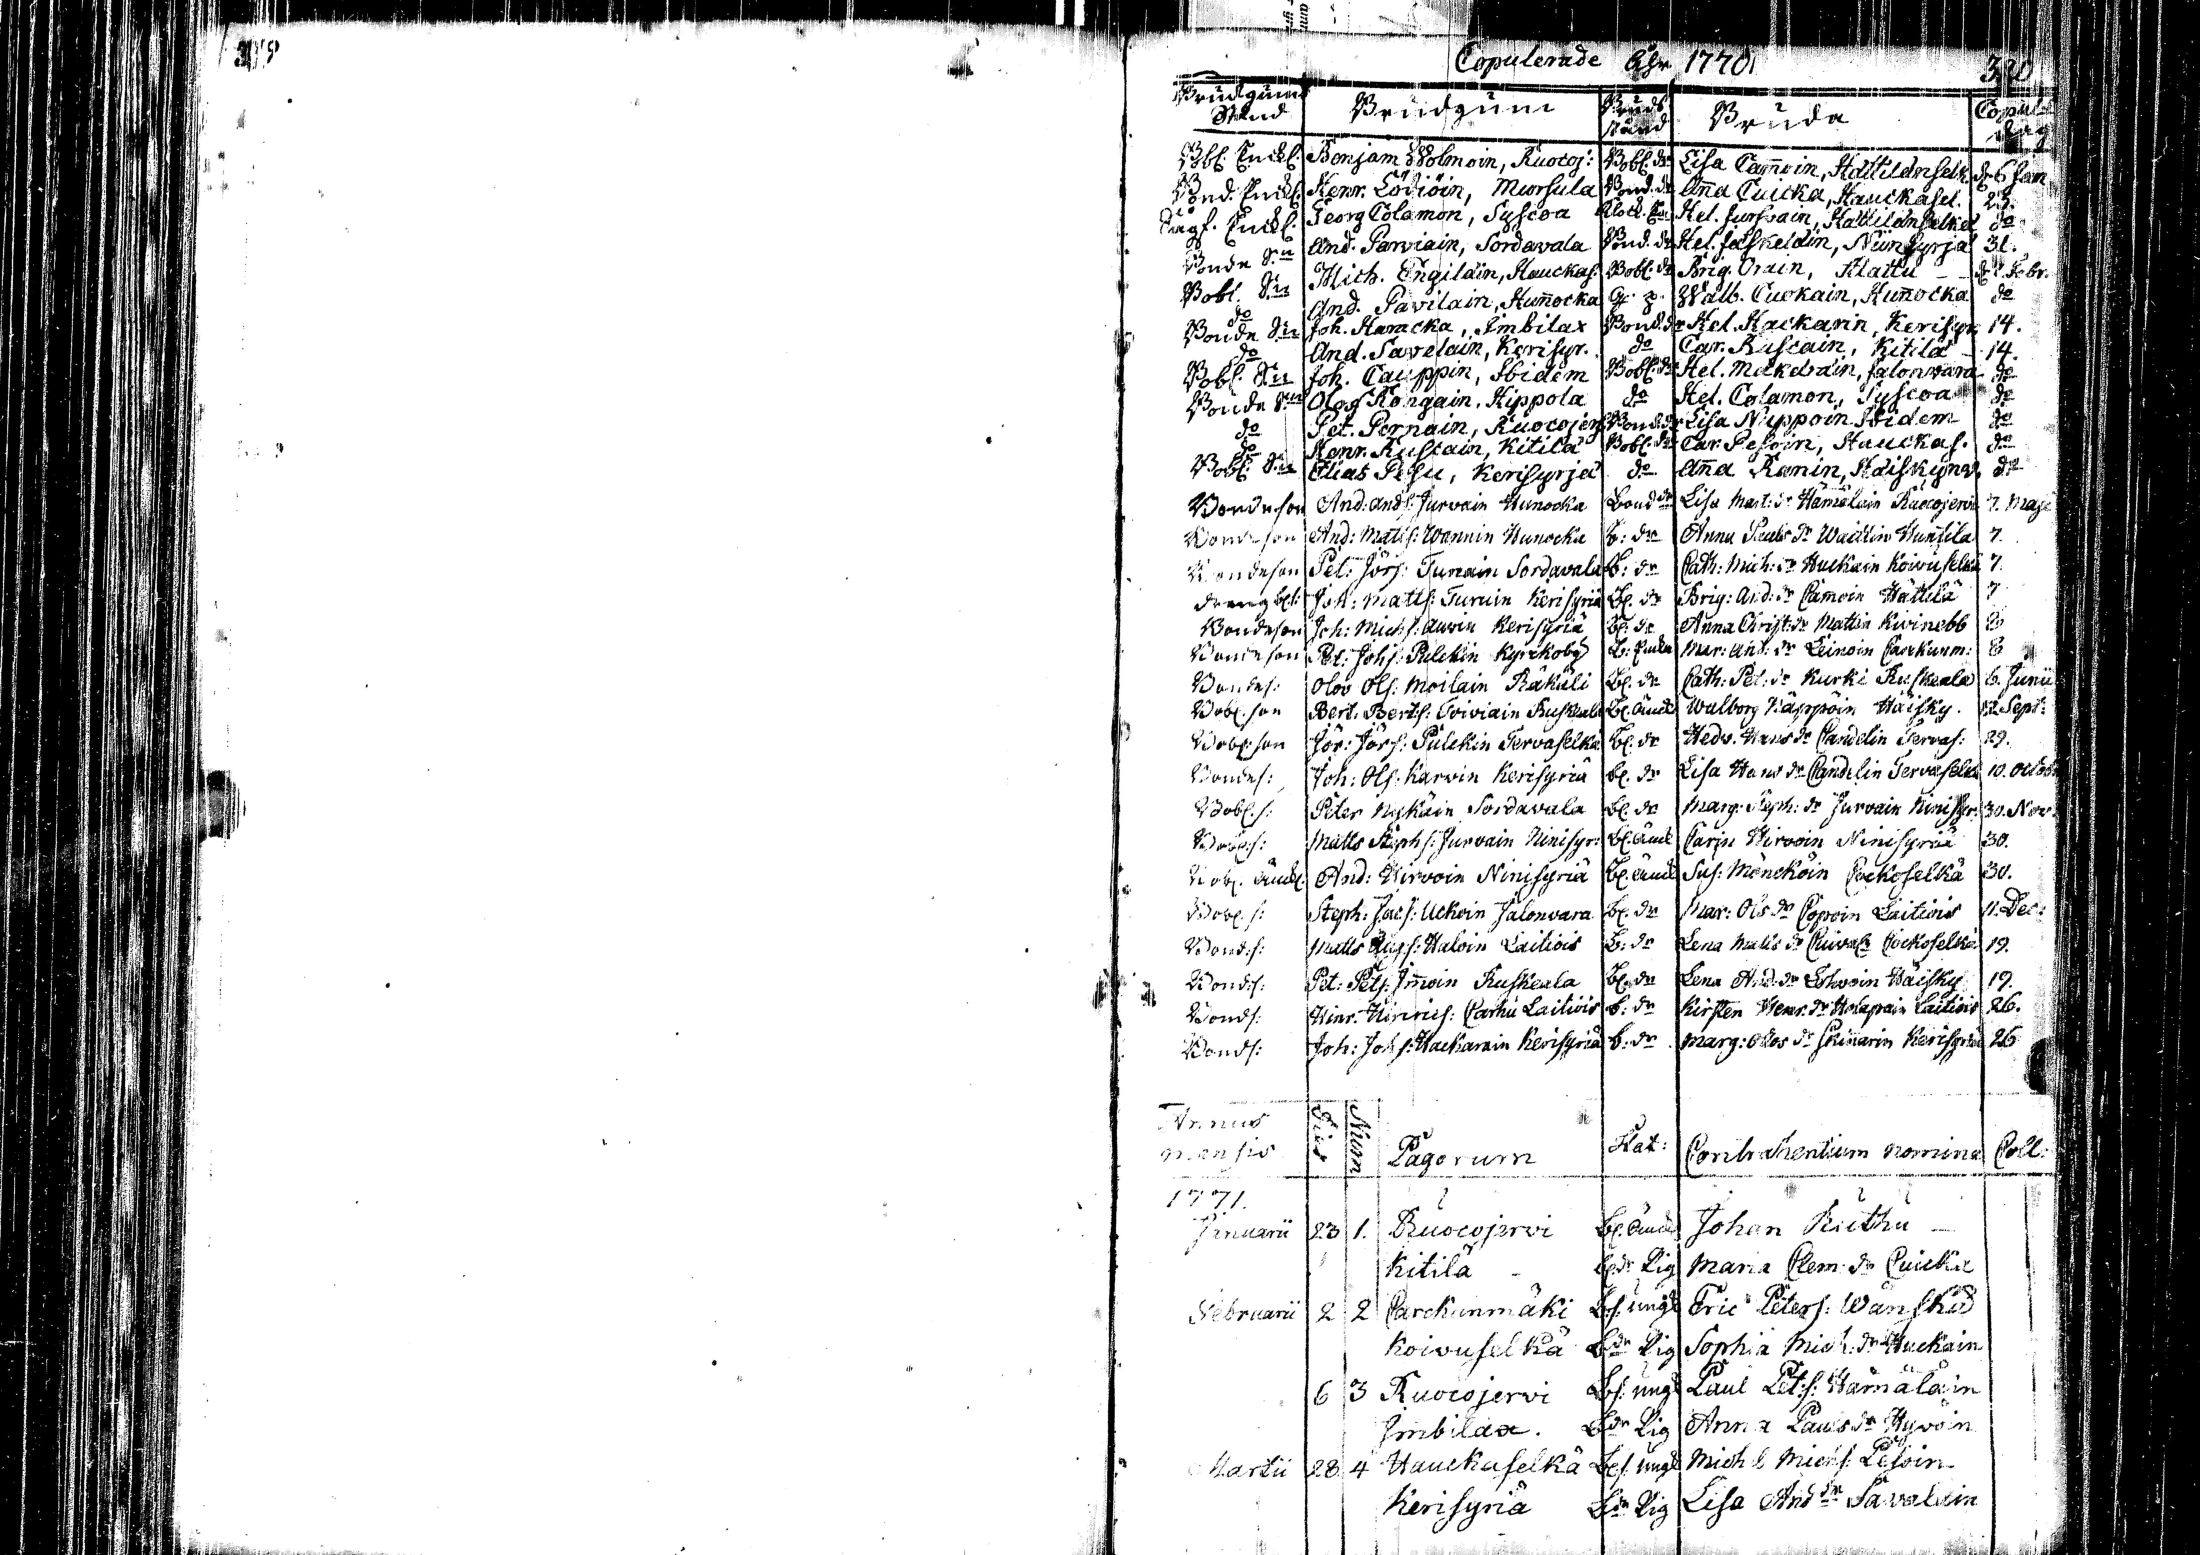 Copulerade Åhr 1770
320
Brudgums Stånd Brudgum Bruds stånd Bruda Copul: dag
Bobl. Enckl. Benjam Holmoin, Ruocoj: Bobl. dr Lisa Camoin, Hättilänselk. d. 6 Jan.
Bond. Enckl. Henr. Lödiöin, Mursula Bond. dr Aña Cuicka, Hauckasel. 23.
Enckl. Georg Colamon, Syscoa Hel. Jurvain, Hattilänselkä do
Bonde Sn And. Parviain, Sordavala Bond. dr Hel. Jäskeläin, Niinsyrjä 31.
Bobl. Sn Mich. Engiläin, Hauckas: Bobl. dr Brig. Orain, Hattu – – d. 2 Febr.
do And. Pavilain, Huñocka Walb. Cuokain, Huñocka do
Bonde Sn Joh. Haracka, Imbilax Bond. dr Hel. Hackarin, Kerisyr. 14.
do And. Savelain, Kerisyr. do Car. Ruscain, Kitilä – 14.
Bobl. Sn Joh. Cauppin, Ibidem Bobl. dr Hel. Mekeläin, Jalonvara do
Bonde Sn Olof Kongain, Kippola do Hel. Colamon, Syscoa do
do Pet. Pernain, Ruocojerf Bond. dr Lisa Nuppoin Ibidem do
do Henr. Ruscain, Kitilä Bobl. dr Car. Pesoin, Hauckas. do
Bobl. Sn Elias Pesu, Kerisyrjä do Aña Ranin, Häiskynv. do
Bondeson And: Ands: Jurvain Hunocka Bond dr Lisa Matt: dr Hämäläin Ruocojervi 7. Maji
Bondeson And: Matts: Wannin Hunocka b: dr Anna Pauls dr Waittin Huñtila 7.
Bondeson Pet: Jörs: Turuain Sordavala b: dr Cath: Mich: dr Huckain Koivuselkä 7.
dreng bl: Joh: Matts: Turuin Kerisyriä bl. dr Brig: And: dr Camoin Hättilä 7
Bondeson Joh: Michs: Auvin Kerisyriä bl. dr Anna Christ: dr Mattin Kvinebb 8
Bondeson Pet: Johs: Pulckin Kyrckoby b: Enka Mar: And: dr Leinoin Carckunm: 8
Bondes: Olov Ols: Moilain Räkäli bl. dr Cath: Pet: dr Kurki Ruskeala 6. Junii
Bobl. son Bert: Berts: Toiviain Ruskeala bl. änck Walborg Käppöin Häisky. 12. Sept:
Bobl: son Jör: Jörs: Pulckin Tervaselkä bl. dr Hedv. Hans dr Candelin Tervas: 29.
Bondes: Joh: Ols: Karvin Kerisyriä bl. dr Lisa Hans dr Candelin Tervaselkä 10. Octobr
Bobl. s: Peter Nyckäin Sordavala bl. dr Marg: Steph: dr Jurvain Ninisyr: 30. Nov.
Matts Stephs: Jurvain Ninisyr: bl. änck Carin Hirvoin Ninisyriä 30.
Bobl. änckl. And: Hirvoin Ninisyriä bl. änck Sus: Möncköin Cockoselkä 30.
Bobl. s: Steph: Jacs: Uckoin Jalonvara bl. dr Mar: Ols dr Copoin Laitiois 11. Dec:
Bonds: Matts Haloin Laitiois b: dr Lena Matts dr Cockoselkä 19.
Bonds: Pet: Pets: Jmoin Ruskeala bl. dr Lena And: dr Häisky 19.
Bonds: Hinr: Hinrics: Carhu Laitiois b: dr Kirsten Henr: dr Holapain Laitiois 26.
Bonds: Joh: Johs: Hackarain Kerisyriä b: dr Marg: Olos dr Skinnarin Kerisyriä 26
Annus mensis Dies Num Pagorum Stat: Contrahentium nomina Coll:
1771.
Januarii 23 1. Ruocojervi bl. änckl Johan Kuthu –
Kitilä – bl. dr Pig Maria Clem: dr Cuicka
Februarii 2 2 Carckunmäki bs: ungk Eric Peters: Wänskä
Koivuselkä bdr Pig Sophia Mich: dr Huckain
6 3 Ruocojervi bs: ungk Paul Pets: Hämäläin
Jmbilax. bdr Pig Anna Pauls dr Hyvöin
Martii 28 4 Hauckaselkä bls: ungk Mich l Michs: Pesoin
Kerisyriä bdr Pig Lisa And dr Savolain